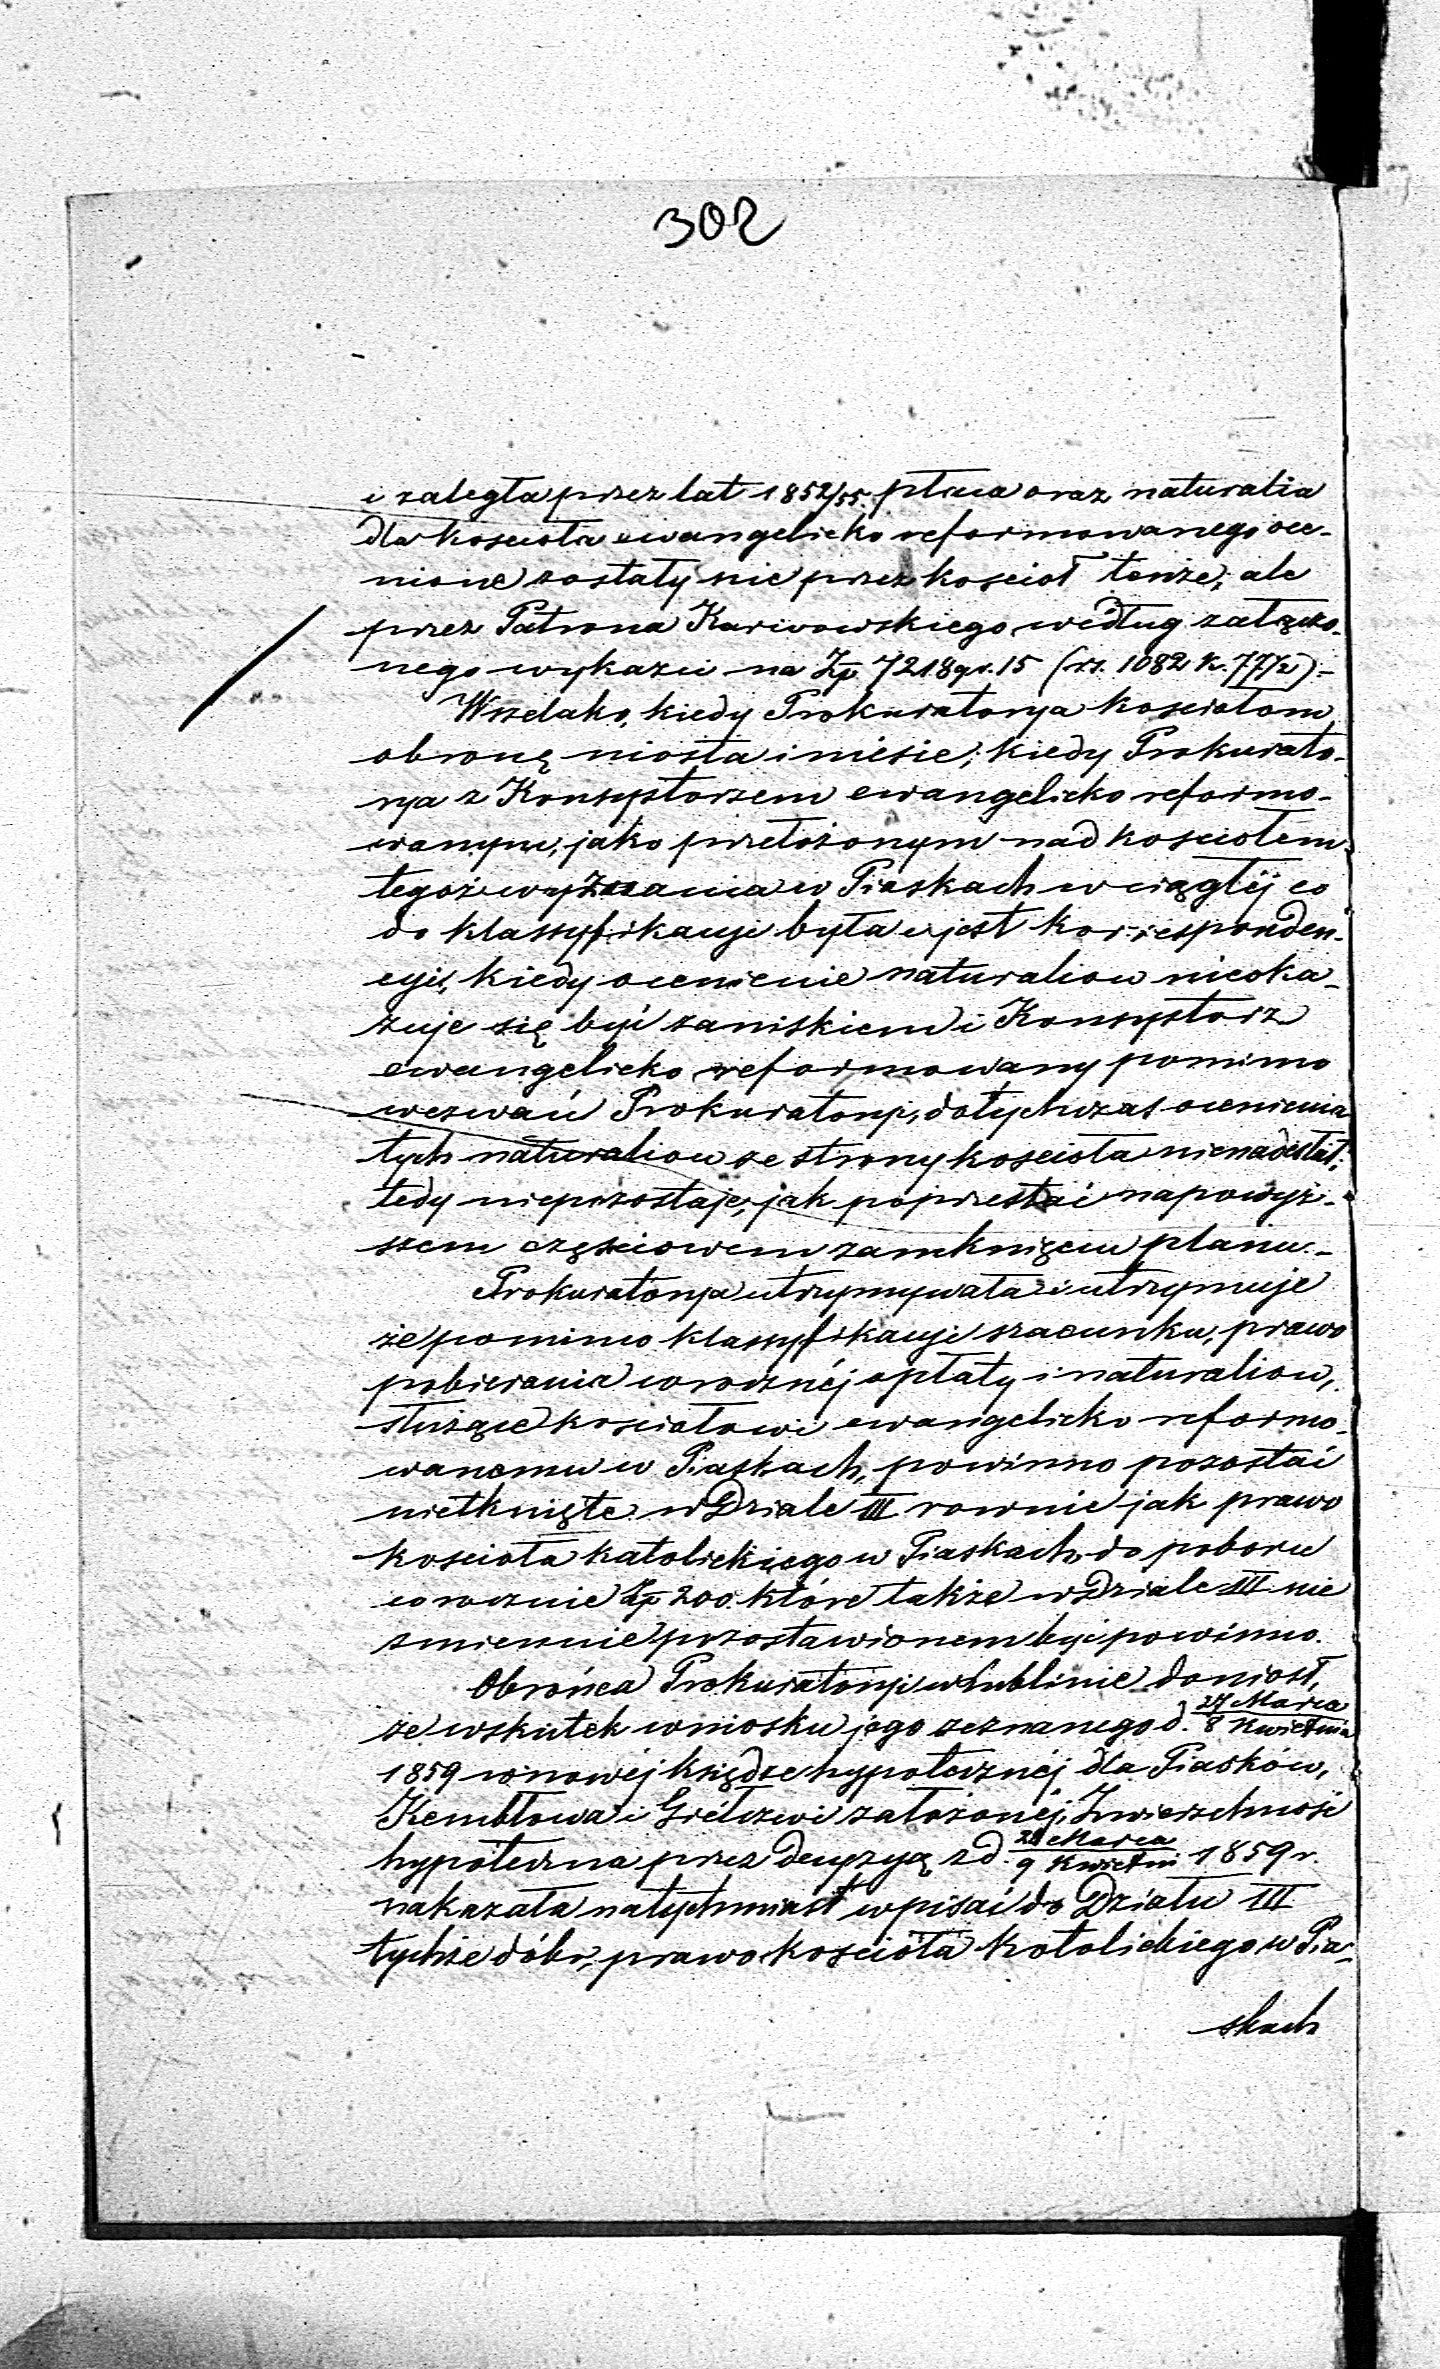 302
i zaległa przez lat 1852/55. płaca oraz naturalia
dla kościoła ewangelicko reformowanego oce-
nione zostały nie przez kościoł tenże, ale
przez Patrona Karwowskiego według załączo-
nego wykazu na Zp 7218 gr. 15 (rs. 1082 k. 77 1/2) =
Wszelako, kiedy Prokuratorya kościołom
obronę niosła i niesie; kiedy Prokurato-
rya z Konsystorzem ewangelicko reformo-
wanym, jako przełożonym nad kościołem
tegoż wyznania w Piaskach w ciągłéj co
do klassyfikacyi była i jest korresponden-
cyi, kiedy ocenienie naturaliow nieoka-
zuje się być zaniskiem i Konsystorz
ewangelicko reformowany pomimo
wezwań Prokuratoryi, dotychczas ocenienia
tych naturaliow ze strony kościoła nienadesłał;
tedy niepozostaje, jak poprzestać na powyż-
szem częściowem zamknięciu planu. -
Prokuratorya utrzymywała i utrzymuje
że pomimo klassyfikacyi szacunku, prawo
pobierania corocznéj opłaty i naturaliow,
służące kościołowi ewangelicko reformo-
wanemu w Piaskach, powinno pozostać
nietknięte w Dziale III rownie jak prawo
kościoła katolickiego w Piaskach do poboru
corocznie Zp 200. które także w Dziale III nie
zmiennie pozostawionem być powinno.
Obrońca Prokuratoryi w Lublinie doniosł,
że wskutek wniosku jego zeznanego d. 27 Marca / 8 Kwietnia
1859 w nowéj księdze hypotecznéj dla Piasków,
Kembłowa i założonéj, Zwierzchność
hypoteczna przez decyzyą z d. 28 Marca / 9 Kwietni 1859 r.
nakazała natychmiast wpisać do Działu III
tychże dóbr, prawo kościoła katolickiego w Pia-
skach